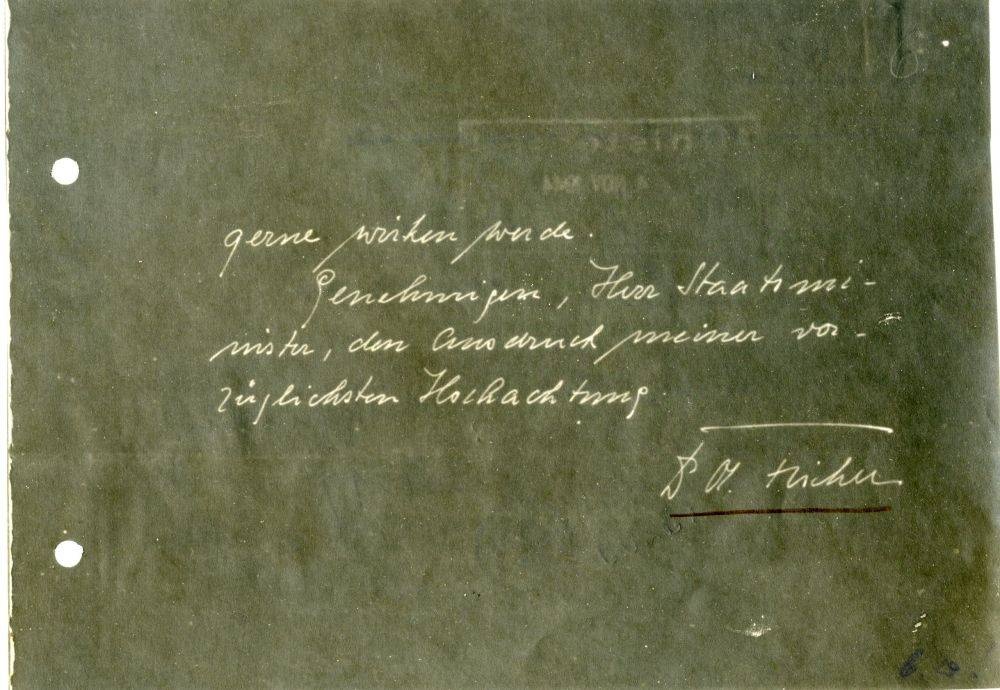 gerne wirken werde.
Genehmigen, Herr Staatsmi-
nister, den Ausdruck meiner vor-
züglichsten Hochachtung
Dr. A. Fischer